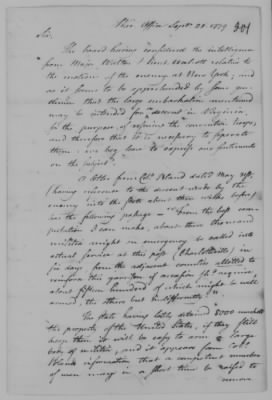 War Office Sept. 21. 1779 301
Sir,
The board having considered the intelligence
from Major Mercer & Lieut. relative to
the motions of the enemy at New York; and
as it seems to be apprehended by some gen-
tlemen that the large embarkation mentioned
may be intended for a descent in Virginia,
for the purpose of rescuing the convention troops;
and therefore that it is necessary to separate
them; we beg leave to express our sentiments
on the subject.
A letter from Col. Bland dated May 15th.
(having reference to the descent made by the
enemy into the state about three weeks before)
has the following passage — "From the best com-
putation I can make, about three thousand
militia might on emergency be called into
actual service at this post (Charlottesville) in
six days from the adjacent counties allotted to
reinforce this garrison if occasion should require,
about fifteen hundred of which might be well
armed, the others but indifferently."
The State having lately detained 5000 muskets
the property of the United States, if they still
keep them it will be safe to arm a large
body of militia; and it appears from Col.
Bland's information that a competent number
of men may in a short time be raised to
remove